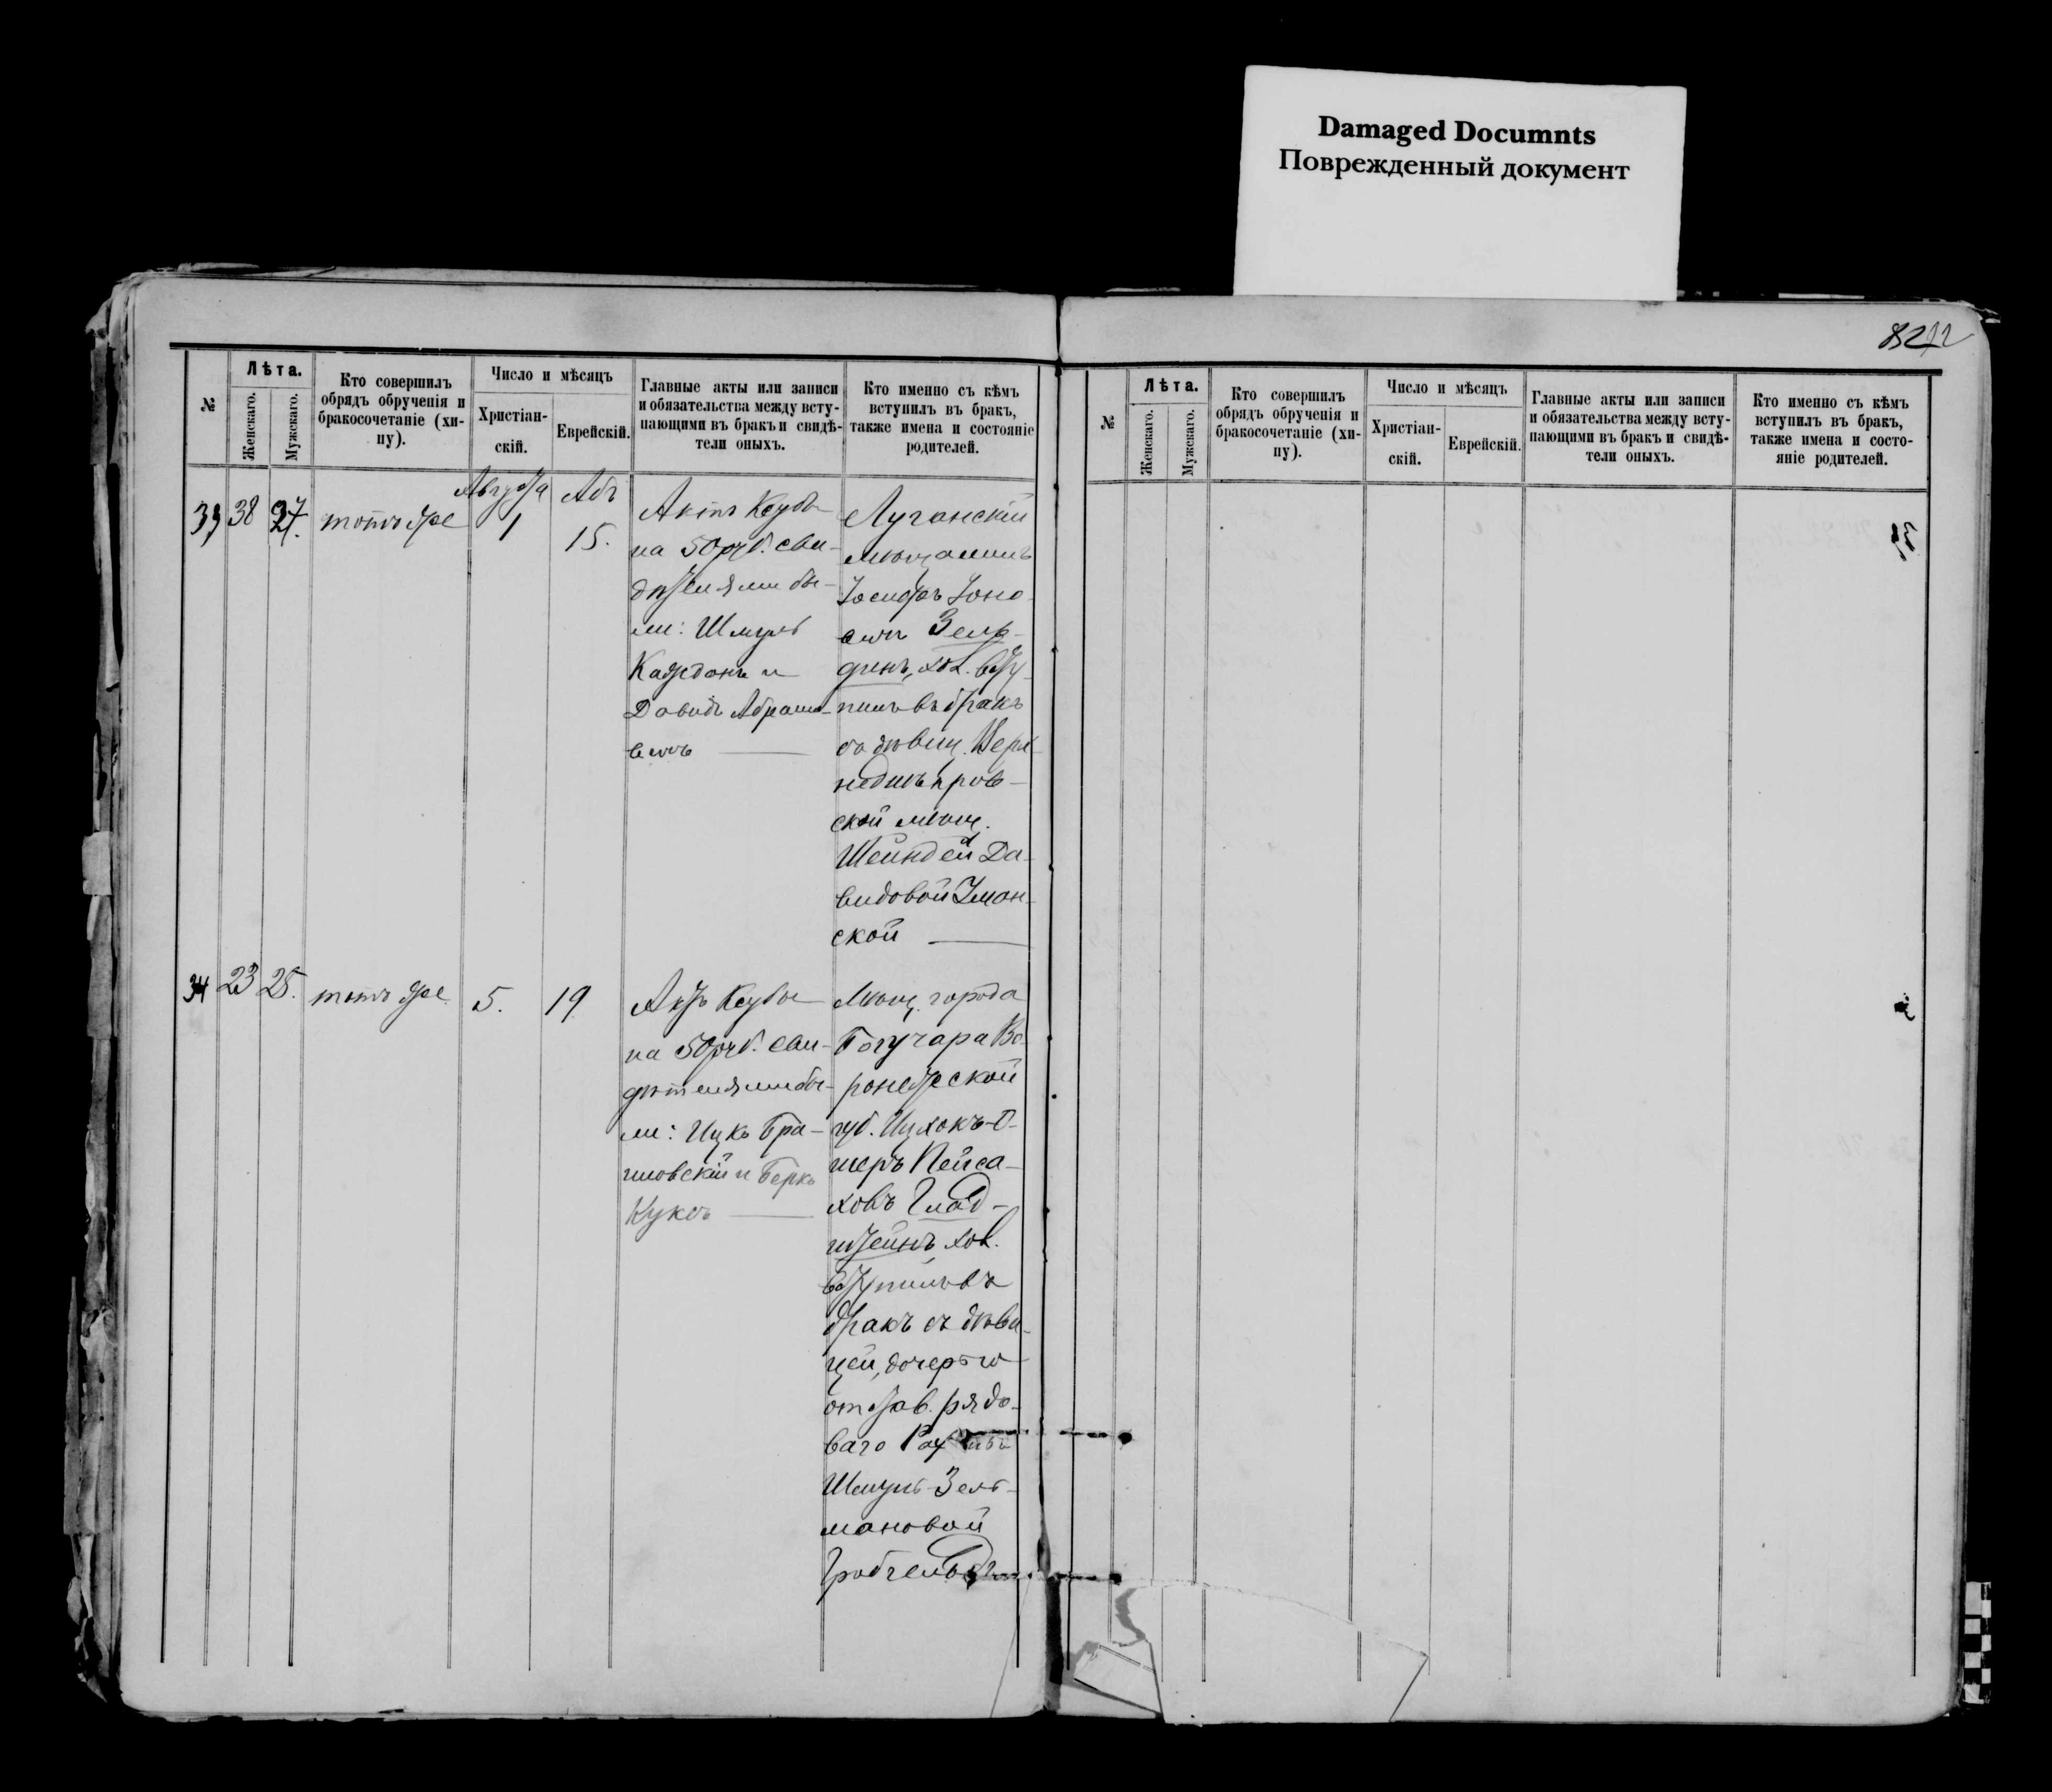 Damaged Documnts
Поврежденный документ
82
№
Лѣта.
Женскаго.
Мужскаго.
Кто совершилъ
обрядъ обрученія и
бракосочетаніе (хи-
пу).
Число и мѣсяцъ
Христіан-
скій.
Еврейскій.
Главные акты или записи
и обязательства между всту-
пающими въ бракъ и свидѣ-
тели оныхъ.
Кто именно съ кѣмъ
вступилъ въ бракъ,
также имена и состояніе
родителей.
Августа
Абъ
33
38
27.
тотъ же
1
15.
Актъ Кесубы
на 50 руб. сви-
дѣтелями бы-
ли: Шмуль
Каждонъ и
Давидъ Абрамо-
вичъ
Луганскій
мѣщанинъ
Іосифъ Іоно-
вичъ
хол. всту-
пилъ въ бракъ
съ дѣвиц. Верх-
недиѣпров-
ской мѣщ.
Шейндей Да-
видовой Уман-
ской
34
23
25.
тотъ же
5.
19
Актъ Кесубы
на 50 руб. сви-
дѣтелями бы-
ли: Ицко Бра-
иловскій и Берко
Кукоъ
Мѣщ. города
Богучара Во-
ронежской
губ. Ицхокъ-О-
шеръ Пейса-
ховъ Глад-
штейнъ, хол.
вступилъ въ
бракъ съ дѣви-
цей, дочерью
отстав. рядо-
ваго
Шмуль-Зель-
мановой
№
Лѣта.
Женскаго.
Мужскаго.
Кто совершилъ
обрядъ обрученія и
бракосочетаніе (хи-
пу).
Число и мѣсяцъ
Христіан-
скій.
Еврейскій.
Главные акты или записи
и обязательства между всту-
пающими въ бракъ и свидѣ-
тели оныхъ.
Кто именно съ кѣмъ
вступилъ въ бракъ,
также имена и состо-
яніе родителей.